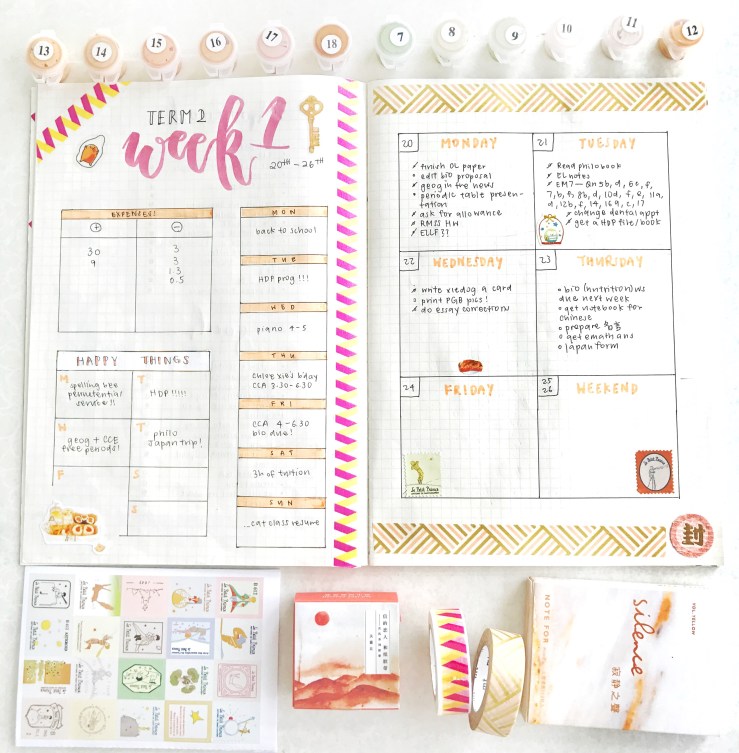 13
14
15
16
17
18
7
8
9
10
11
12
TERM 2
week 1
20TH – 26TH
EXPENSES
+
−
30
9
3
3
1.3
0.5
HAPPY THINGS
M
spelling bee
service!!
T
HDP!!!!!
W
geog + CCE
free periods!
T
philo
Japan trip!
F
S
S
MON
back to school
TUE
HDP prog!!!
WED
piano 4-5
THU
chloe xie's bday
CCA 3.30-6.30
FRI
CCA 4-6.30
bio due!
SAT
3h of tuition
SUN
cat class resume
20
MONDAY
finish OL paper
edit bio proposal
geog in the news
periodic table presen-
tation
ask for allowance
RMSS HW
ELLF??
21
TUESDAY
Read philo book
EL notes
EM7 — Qn 5b, d, 6e, f,
7,b,f, 8b, d, 10d, f, 11a,
d, 12b, c, 14, 16a, c, 17
change dental appt
get a HDP file/book
22
WEDNESDAY
write xiedog a card
print PGB pics!
do essay correction
23
THURSDAY
bio (nutrition) ws
due next week
get notebook for
chinese
prepare
get emath ans
japan form
24
FRIDAY
Le Petit Prince
25
26
WEEKEND
Le Petit Prince
封
Le Petit Prince
NOTE FOR
silence
寂静之聲
VOL. YELLOW